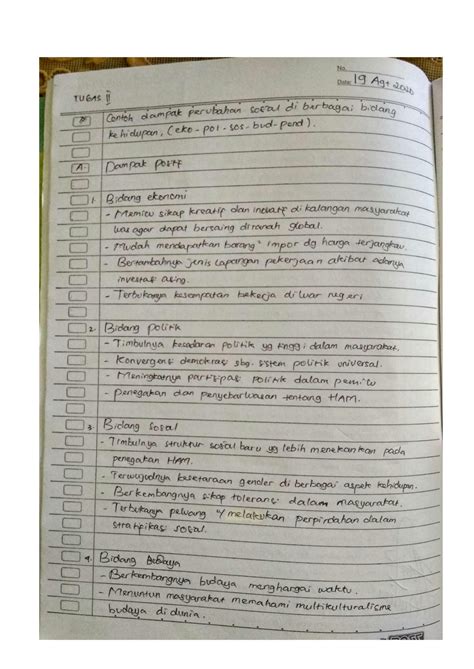 No.
Date: 19 Agt 2020
TUGAS II
Contoh dampak perubahan sosial di berbagai bidang
kehidupan, (eko-pol-sos-bud-pend).
A. Dampak positf
1. Bidang ekonomi
- Memicu sikap kreatif dan inovatif di kalangan masyarakat
luas agar dapat bersaing diranah global.
- Mudah mendapatkan barang² impor dg harga terjangkau.
- Bertambahnya jenis lapangan pekerjaan akibat adanya
investasi asing.
- Terbukanya kesempatan bekerja di luar negeri.
2. Bidang politik
- Timbulnya kesadaran politik yg tinggi dalam masyarakat.
- Konvergensi demokrasi sbg. sistem politik universal.
- Meningkatnya partisipasi politik dalam pemilu
- penegakan dan penyebarluasan tentang HAM.
3. Bidang sosial
- Timbulnya struktur sosial baru yg lebih menekankan pada
penegakan HAM.
- Terwujudnya kesetaraan gender di berbagai aspek kehidupan.
- Berkembangnya sikap toleransi dalam masyarakat.
- Terbukanya peluang u/ melakukan perpindahan dalam
stratifikasi sosial.
4. Bidang Budaya
- Berkembangnya budaya menghargai waktu.
- Menuntun masyarakat memahami multikulturalisme
budaya di dunia.